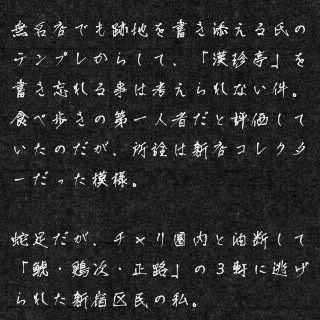 無名店でも跡地を書き添える氏の
テンプレからして、「漢珍亭」を
書き忘れる事は考えられない件。
食べ歩きの第一人者だと評価して
いたのだが、所詮は新店コレクタ
ーだった模様。
蛇足だが、チャリ圏内と油断して
「鯱・鶏次・正路」の3軒に逃げ
られた新宿区民の私。